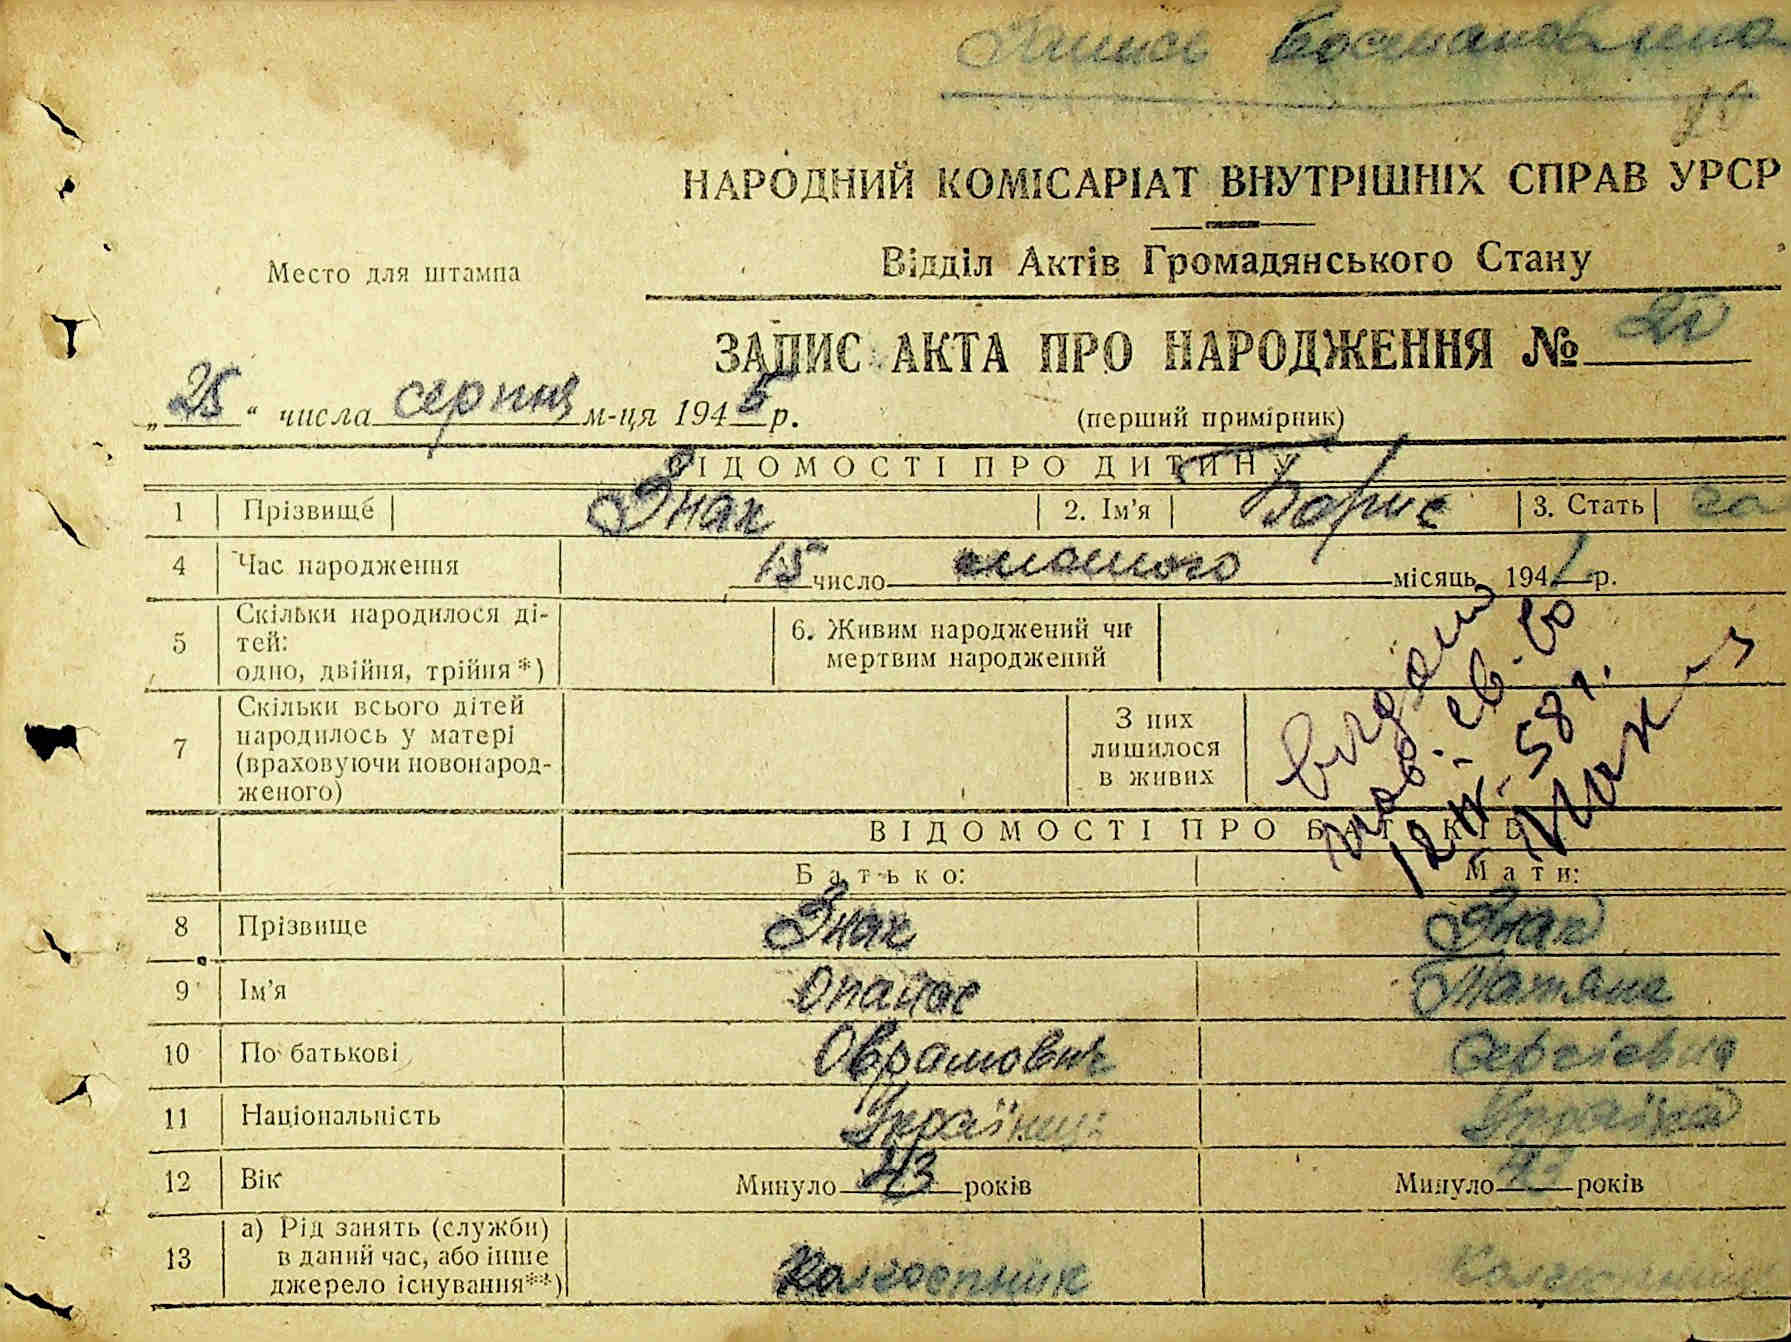 Запись восстановлена
НАРОДНИЙ КОМІСАРІАТ ВНУТРІШНІХ СПРАВ УРСР
Место для штампа
Відділ Актів Громадянського Стану
ЗАПИС АКТА ПРО НАРОДЖЕННЯ №
„25“ числа серпня м-ця 1945 р.
(перший примірник)
ВІДОМОСТІ ПРО ДИТИНУ
1 Прізвище Знак 2. Ім'я Борис 3. Стать
4 Час народження 15 число лютого місяць 1941 р.
5 Скільки народилося ді-
тей:
одно, двійня, трійня*)
6. Живим народжений чи
мертвим народжений
7 Скільки всього дітей
народилось у матері
(враховуючи новонарод-
женого)
З них
лишилося
в живих
видано
58 г.
ВІДОМОСТІ ПРО БАТЬКІВ
Батько: Мати:
8 Прізвище Знак Знак
9 Ім'я Опанас Татяна
10 По батькові Оврамович Сергієвна
11 Національність Українець Українка
12 Вік Минуло 43 років Минуло 43 років
13 а) Рід занять (служби)
в даний час, або інше
джерело існування**)
Колгоспник Колгоспниця